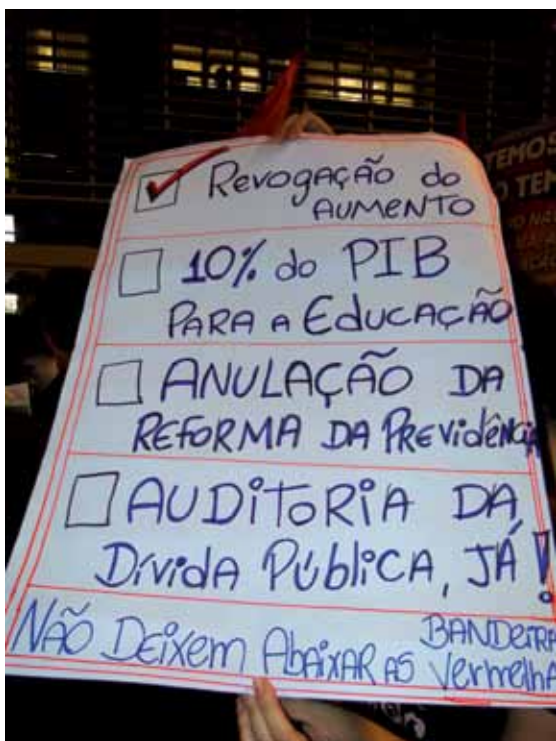 Revogação do
AUMENTO
10% do PIB
PARA A EducAÇÃO
ANULAÇÃO DA
REFORMA DA PREVIDÊNCIA
AUDITORIA DA
DíVIDA PÚBLICA, JÁ!
NÃO DEIXEM ABAIXAR AS BANDEIRA
VERMELHA
TEMOS